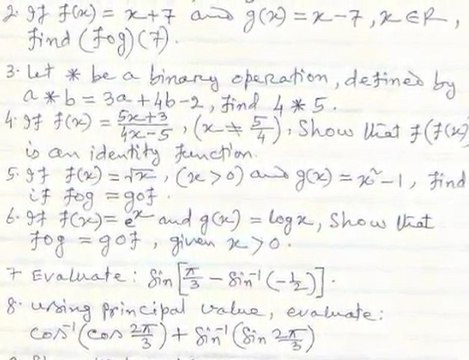 2. If f(x) = x+7 and g(x) = x-7, x ∈ R,
find (fog)(7).
3. Let * be a binary operation, defined by
a * b = 3a + 4b - 2, find 4 * 5.
4. If f(x) = (5x+3)/(4x-5), (x ≠ 5/4), Show that f(f(x)
is an identity function.
5. If f(x) = √x, (x > 0) and g(x) = x² - 1, Find
if fog = gof.
6. If f(x) = eˣ and g(x) = log x, Show that
fog = gof, given x > 0.
7 Evaluate: Sin [π/3 - Sin⁻¹(-1/2)].
8. Using principal value, evaluate:
cos⁻¹(cos 2π/3) + Sin⁻¹(Sin 2π/3)